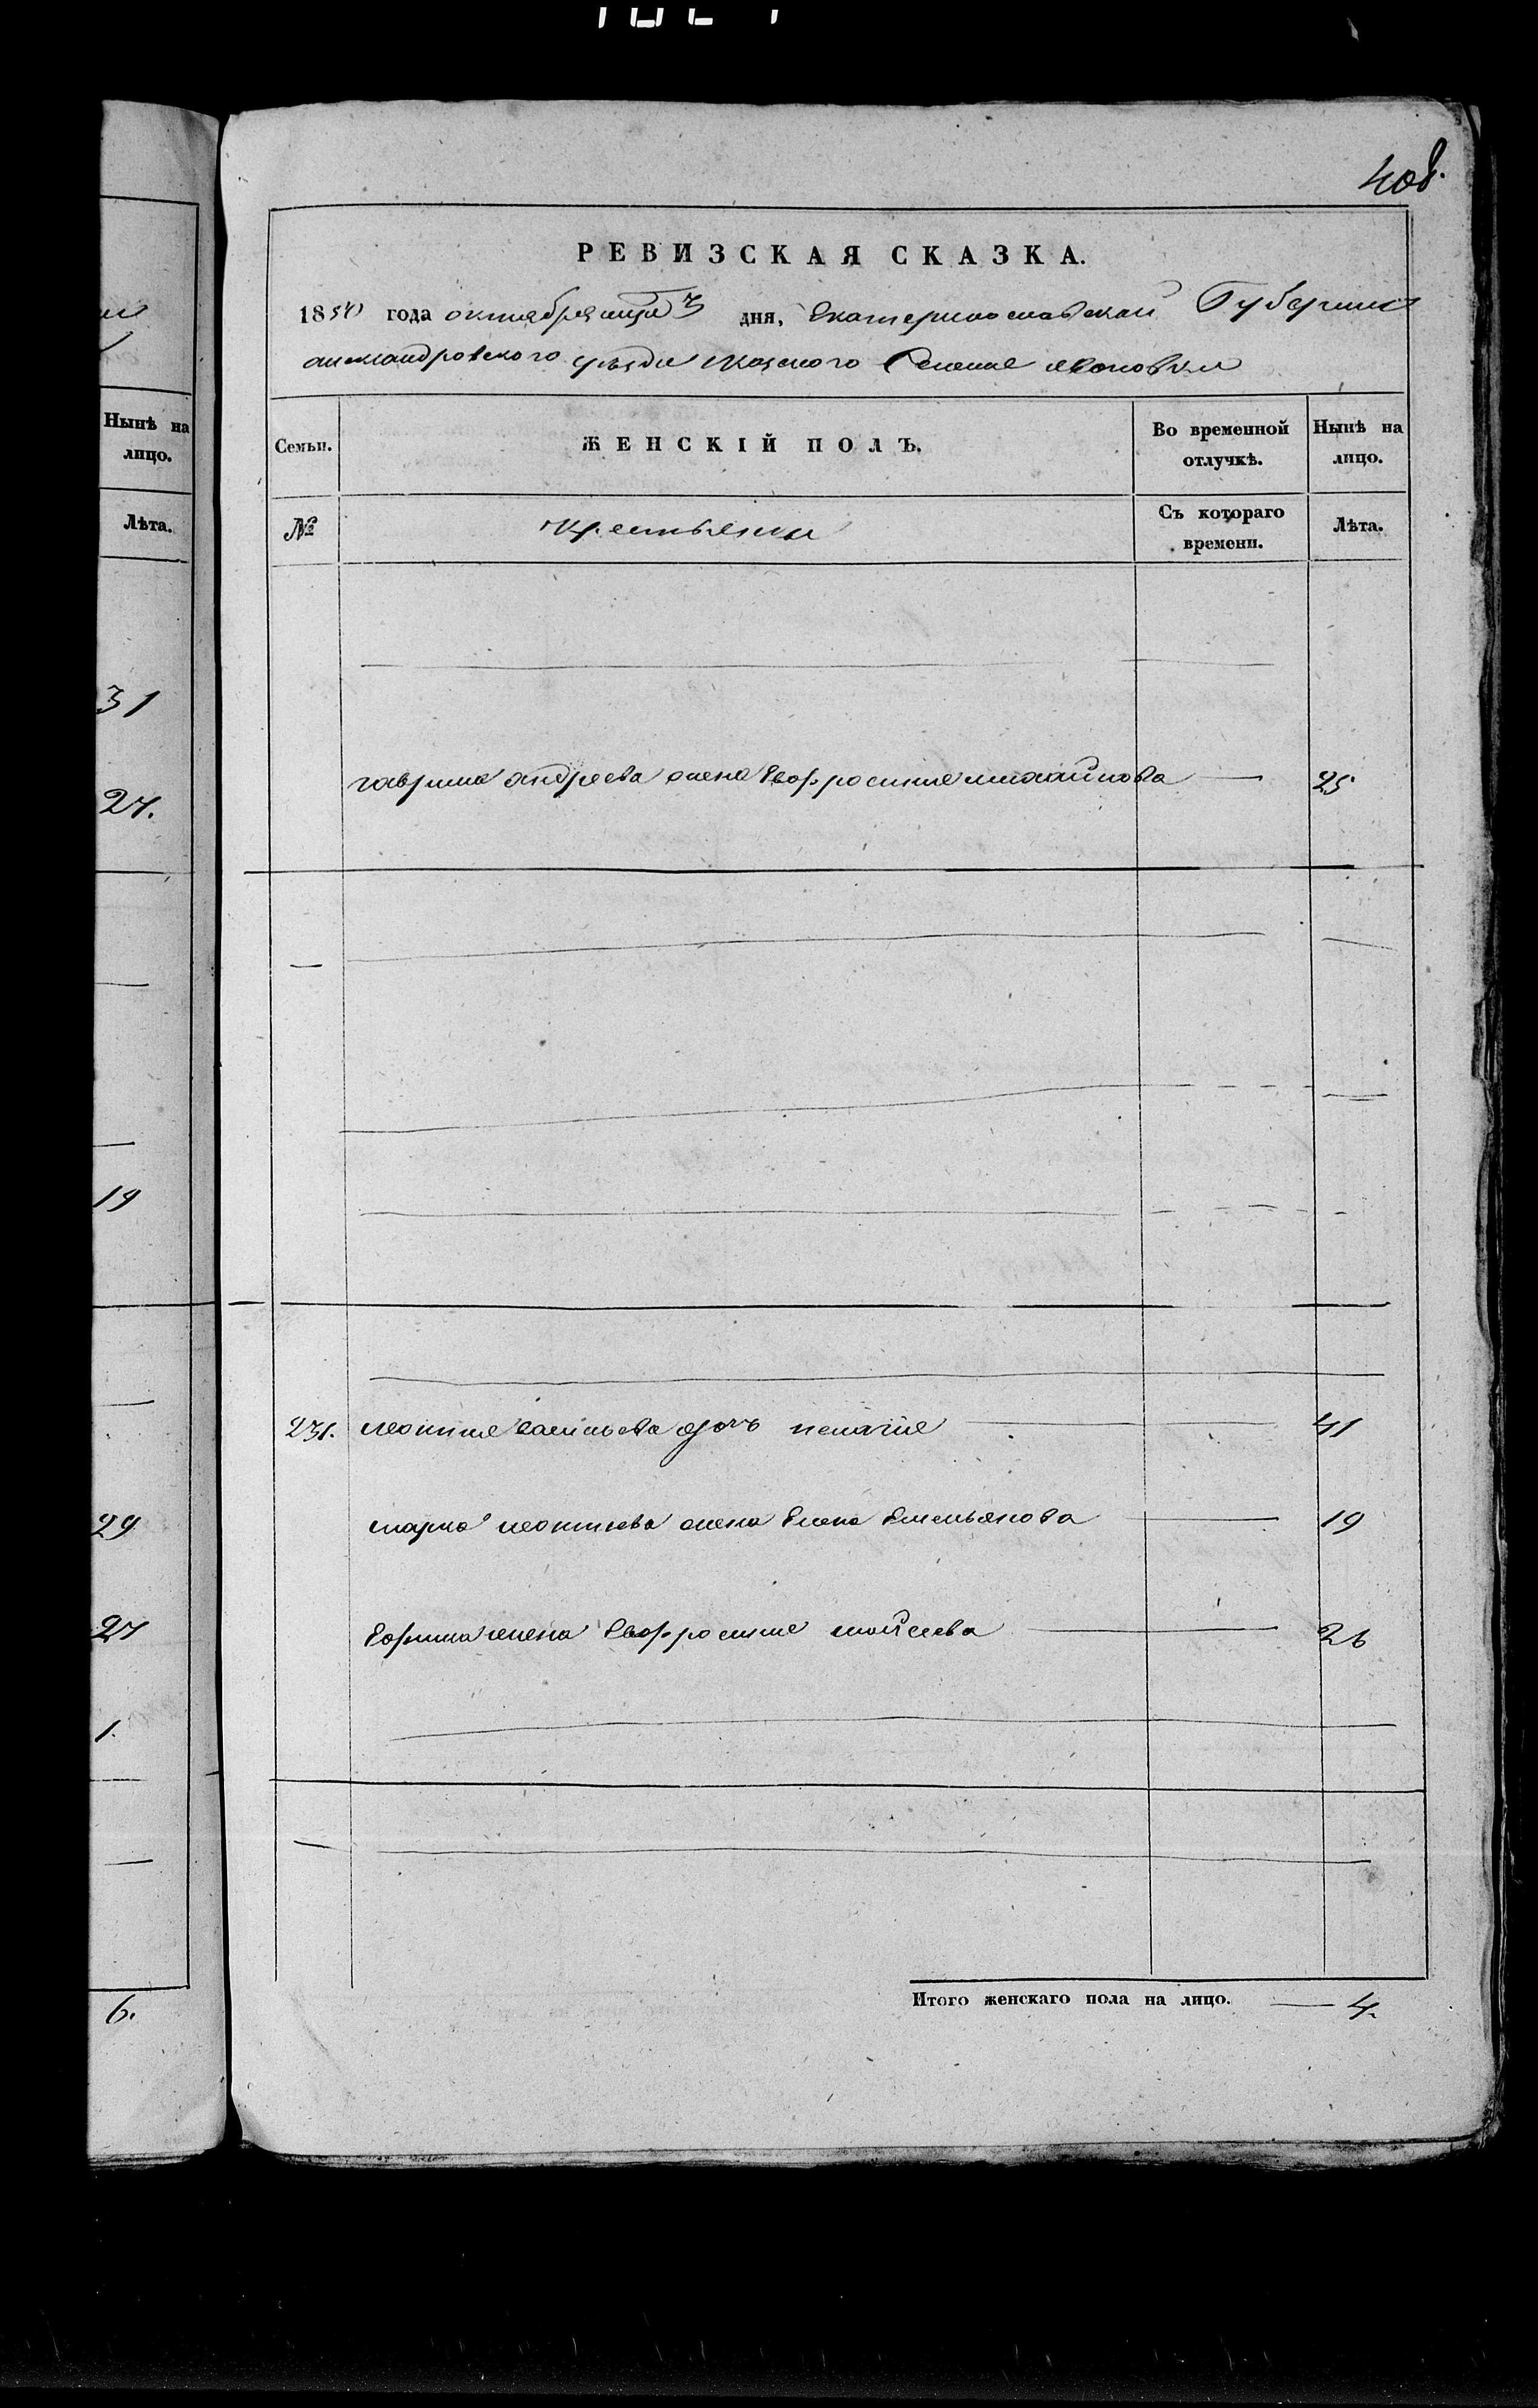 408.
РЕВИЗСКАЯ СКАЗКА.
1850 года октября мца 3 дня, Екатеринославской Губернии
александровского уезда казеного Селения
Семьи.
ЖЕНСКІЙ ПОЛЪ.
Во временной отлучкѣ.
Нынѣ на лицо.
№
Крестьянки
Съ котораго времени.
Лѣта.
гаврила андреева жена Евфросиния михайлова — 25
231. леонтия васильева дочь пелагия — 41
марка леонтиева жена Елена Емельянова — 19
Ефима жена Евфросиния мойсеева — 26
Итого женскаго пола на лицо. — 4.
Нынѣ на
лицо.
Лѣта.
31
27.
19
29
27
1.
6.